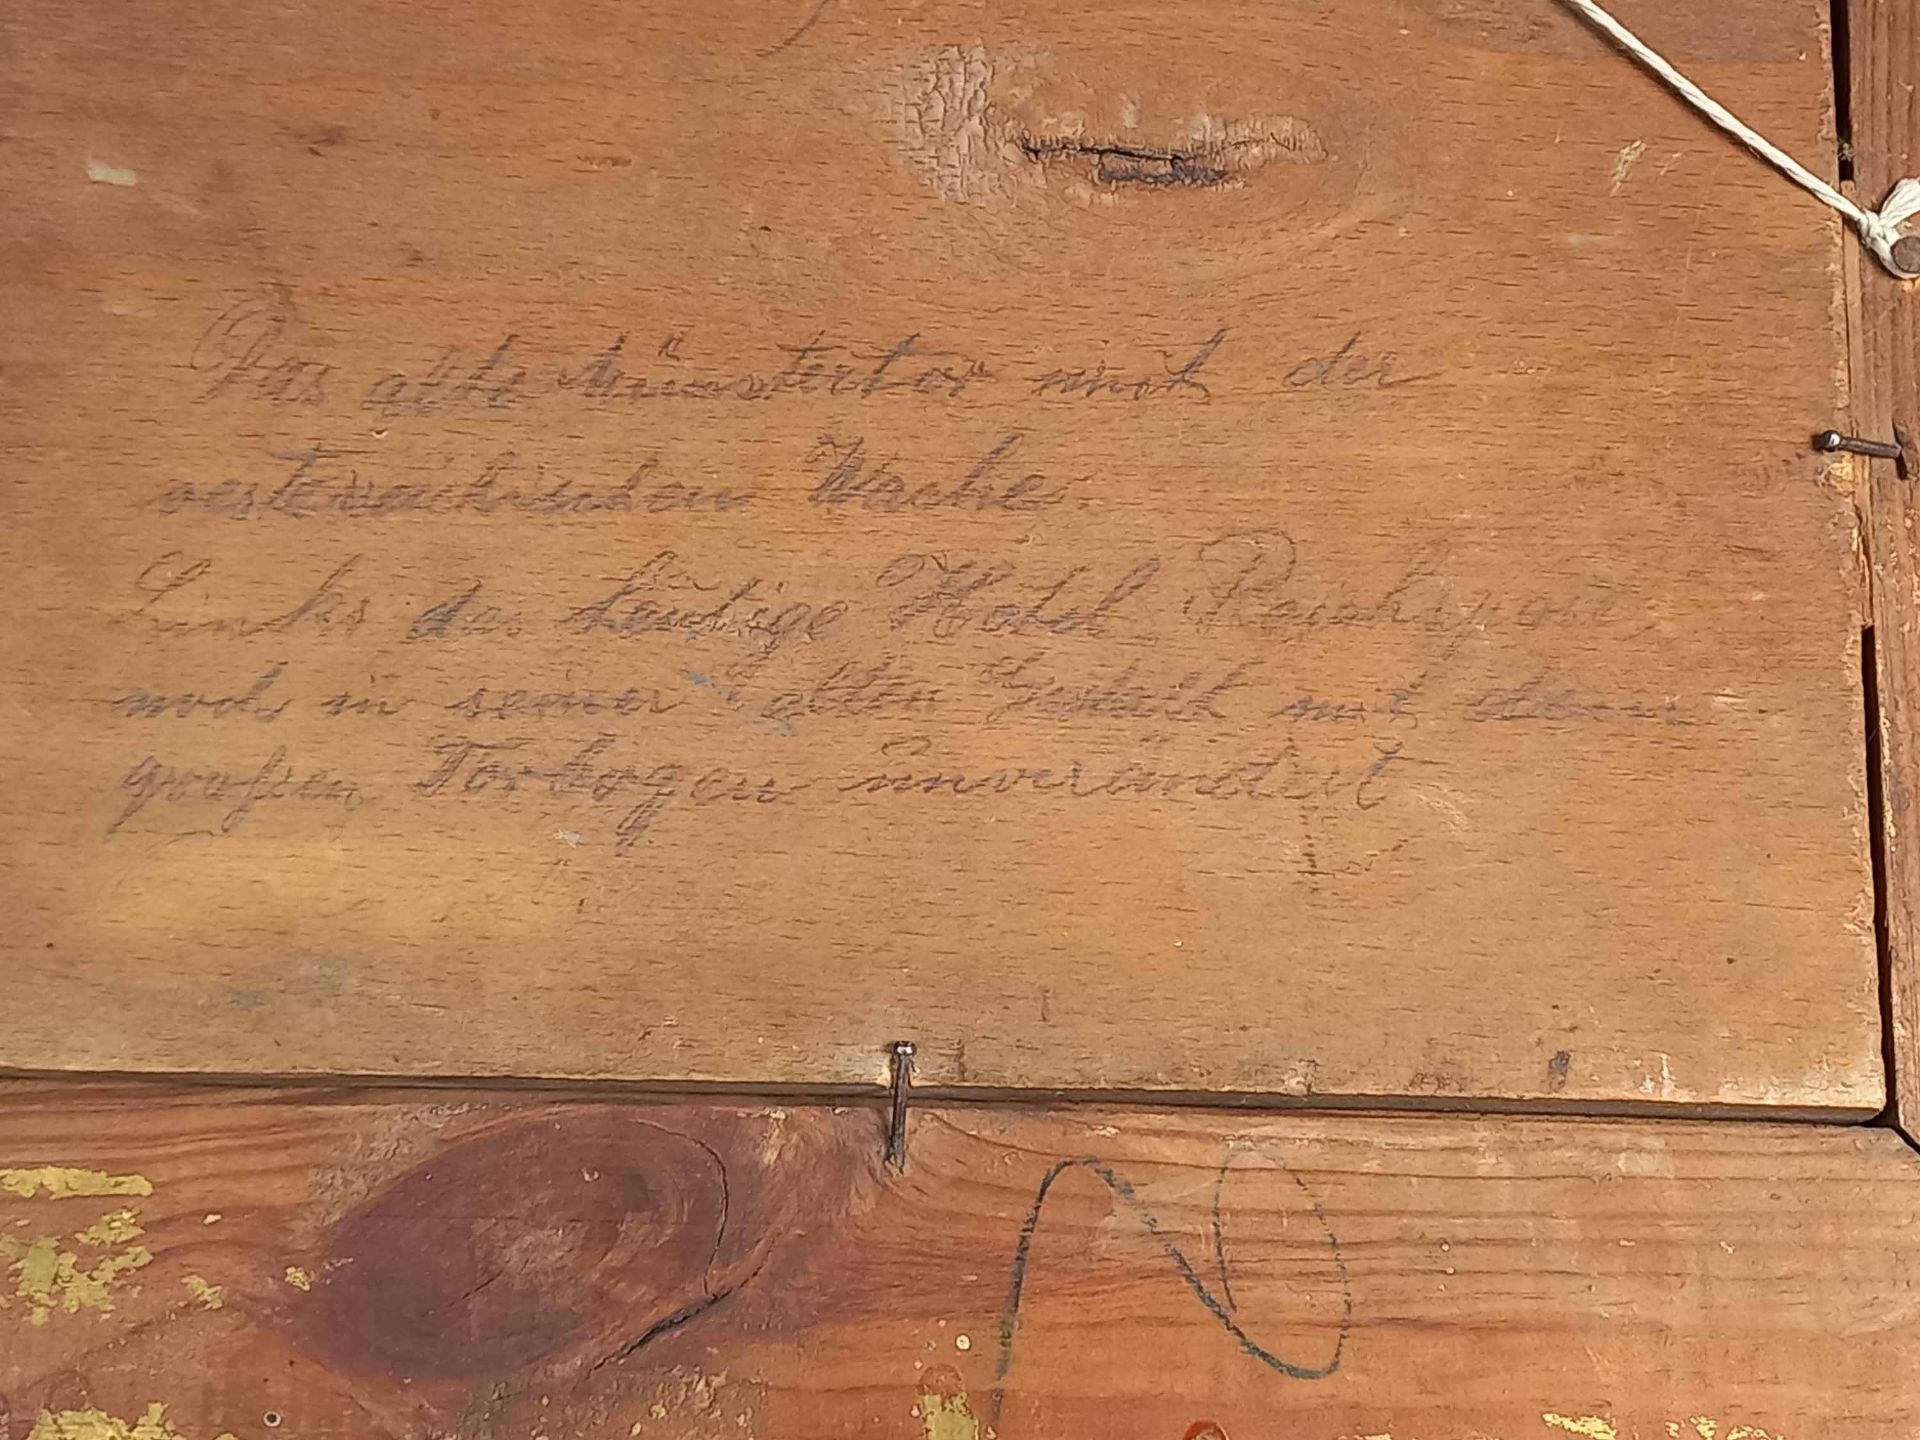 Das alte Münstertor mit der
oesterreichischen Wache.
Links das heutige Hotel
noch in seiner alten Gestalt mit dem
großen Torbogen unverändert